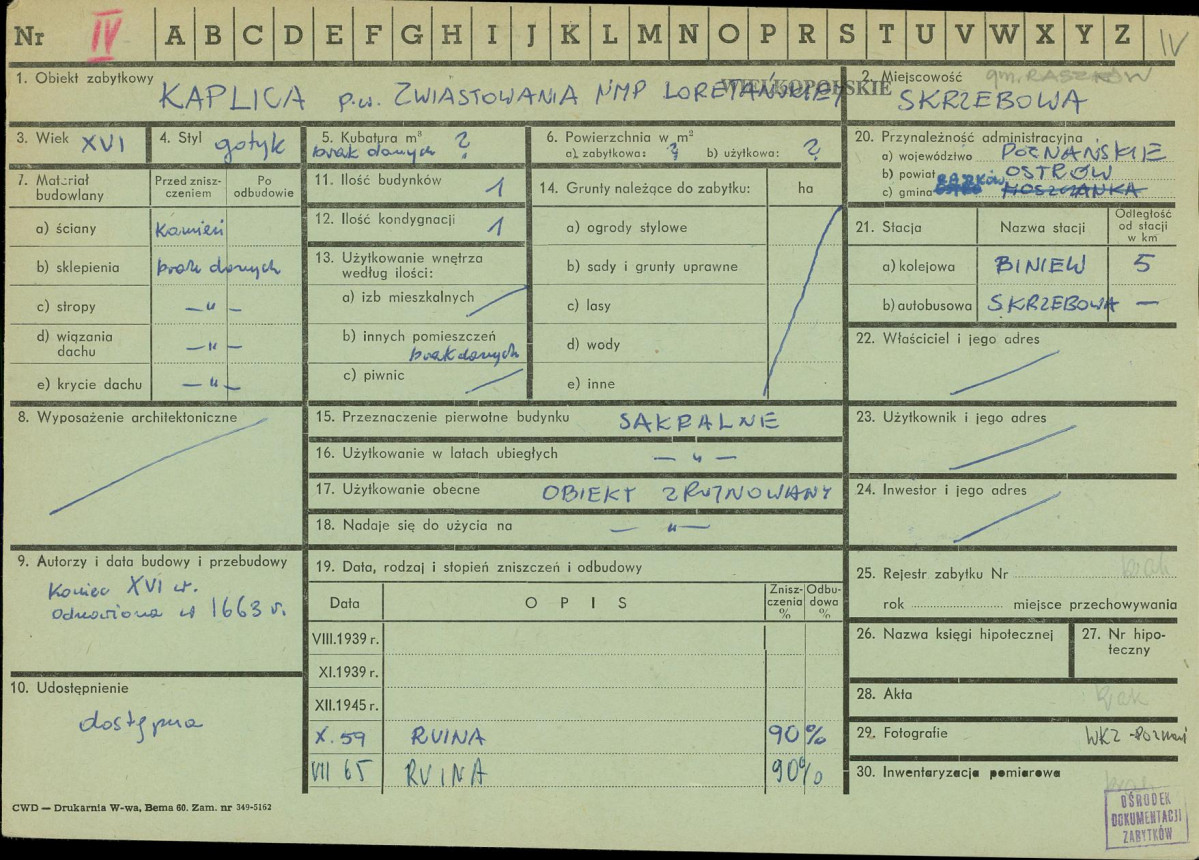 Nr IV A B C D E F G H I J K L M N O P R S T U V W X Y Z IV
1. Obiekt zabytkowy
KAPLICA p.w. ZWIASTOWANIA NMP LORETAŃSKIEJ
WIELKOPOLSKIE
2. Miejscowość gm. RASZKÓW
SKRZEBOWA
3. Wiek XVI
4. Styl gotyk
5. Kubatura m³
brak danych ?
6. Powierzchnia w m²
a) zabytkowa: ? b) użytkowa: ?
20. Przynależność administracyjna
a) województwo POZNAŃSKIE
b) powiat OSTRÓW
c) gmina MOSZCZANKA
7. Materiał budowlany
Przed zniszczeniem
Po odbudowie
a) ściany kamień
b) sklepienia brak danych
c) stropy — " —
d) wiązania dachu — " —
e) krycie dachu — " —
11. Ilość budynków 1
12. Ilość kondygnacji 1
13. Użytkowanie wnętrza według ilości:
a) izb mieszkalnych
b) innych pomieszczeń
brak danych
c) piwnic
14. Grunty należące do zabytku: ha
a) ogrody stylowe
b) sady i grunty uprawne
c) lasy
d) wody
e) inne
21. Stacja Nazwa stacji Odległość od stacji w km
a) kolejowa BINIEW 5
b) autobusowa SKRZEBOWA —
22. Właściciel i jego adres
8. Wyposażenie architektoniczne
15. Przeznaczenie pierwotne budynku SAKRALNE
16. Użytkowanie w latach ubiegłych — " —
17. Użytkowanie obecne OBIEKT ZRUJNOWANY
18. Nadaje się do użycia na — " —
23. Użytkownik i jego adres
24. Inwestor i jego adres
9. Autorzy i data budowy i przebudowy
Koniec XVI w.
Odnowiona w 1663 r.
10. Udostępnienie
dostępna
19. Data, rodzaj i stopień zniszczeń i odbudowy
Data OPIS Zniszczenia % Odbudowa %
VIII.1939 r.
XI.1939 r.
XII.1945 r.
X. 59 RUINA 90%
VII 65 RUINA 90%
25. Rejestr zabytku Nr brak
rok miejsce przechowywania
26. Nazwa księgi hipotecznej
27. Nr hipoteczny
28. Akta brak
29. Fotografie WKZ - Poznań
30. Inwentaryzacja pomiarowa brak
OŚRODEK
DOKUMENTACJI
ZABYTKÓW
CWD — Drukarnia W-wa, Bema 60. Zam. nr 349-5162